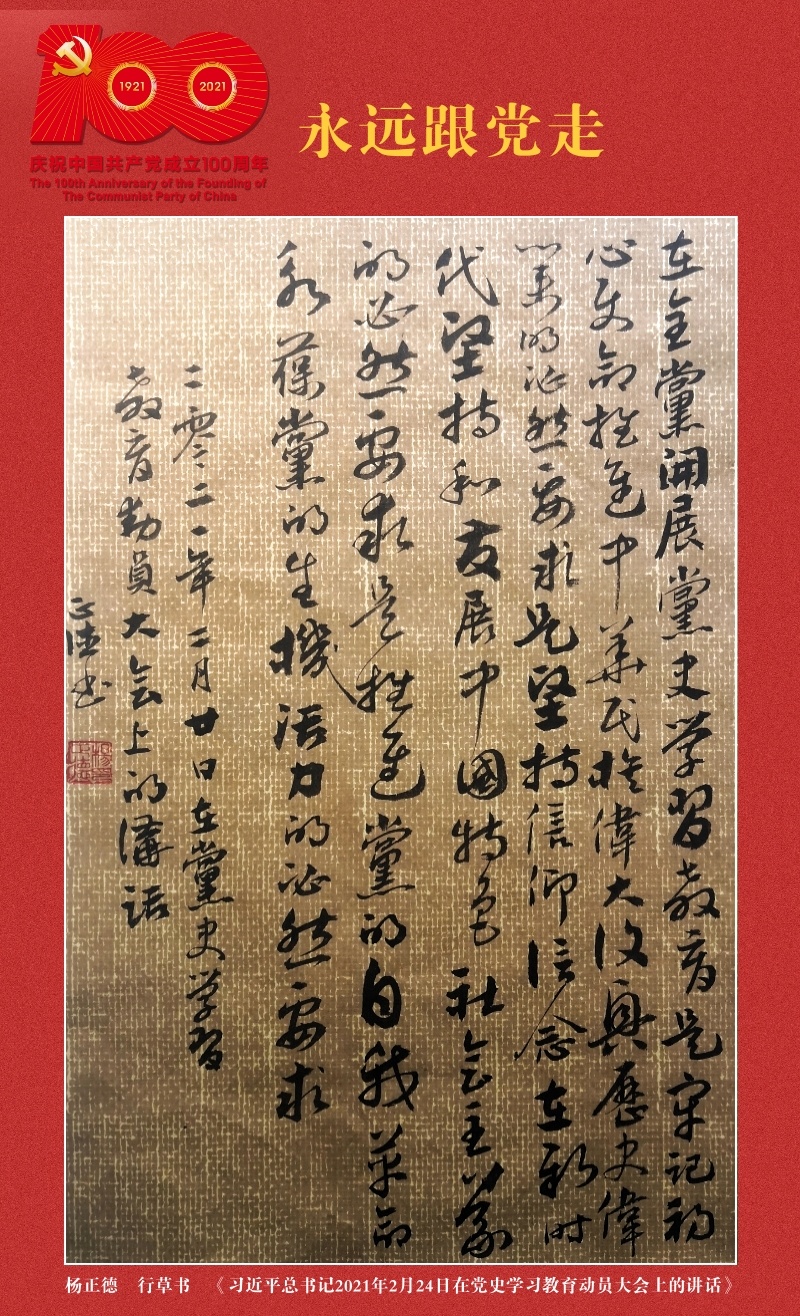 100
1921
2021
庆祝中国共产党成立100周年
The 100th Anniversary of the Founding of
The Communist Party of China
永远跟党走
在全黨開展黨史学習教育是牢记初
心使命推進中華民族偉大復興歷史偉
業的必然要求是坚持信仰信念在新时
代坚持和发展中國特色社会主義
的必然要求是推進黨的自我革命
永葆黨的生機活力的必然要求
二零二一年二月廿日在黨史学習
教育動員大会上的講話
正德书
杨正德 行草书 《习近平总书记2021年2月24日在党史学习教育动员大会上的讲话》